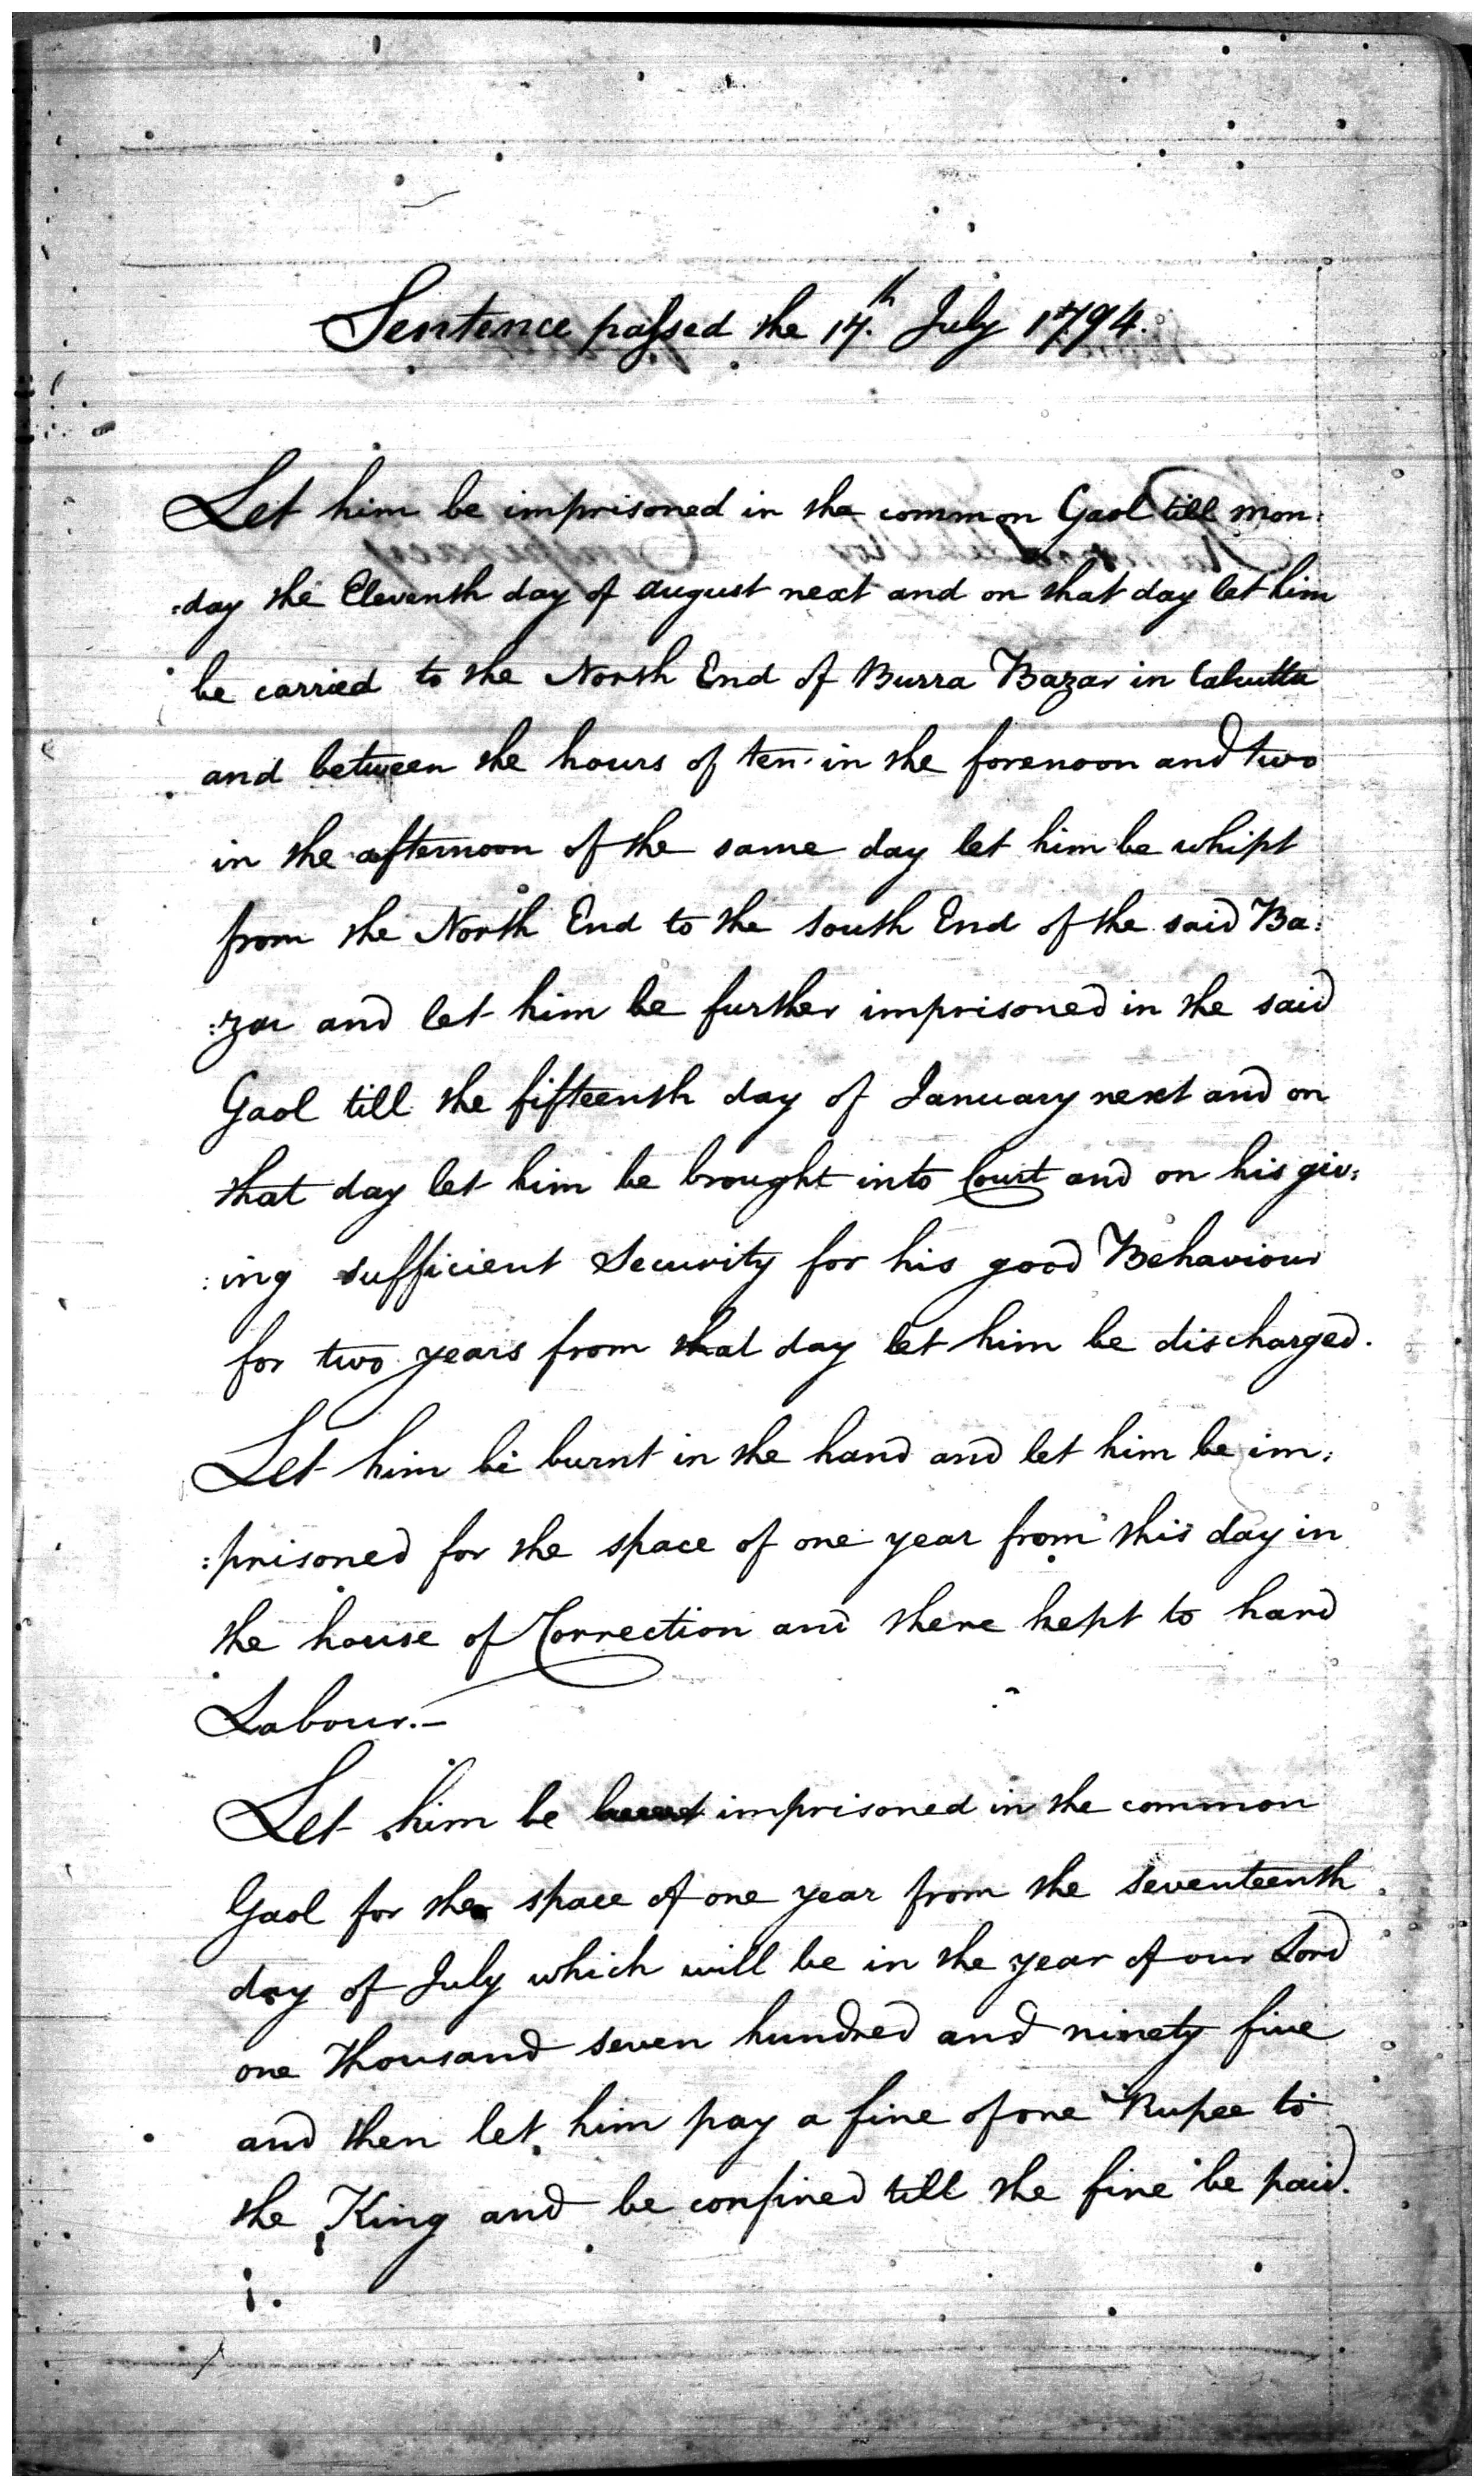 Sentence passed the 17.th July 1794.
Let him be imprisoned in the common Gaol till mon:
:day the Eleventh day of august next and on that day let him
be carried to the North End of Burra Bazar in Calcutta
and between the hours of ten in the forenoon and two
in the afternoon of the same day let him be whipt
from the North End to the South End of the said Ba:
:zar and let him be further imprisoned in the said
Gaol till the fifteenth day of January next and on
that day let him be brought into Court and on his giv:
:ing sufficient Security for his good Behaviour
for two years from that day let him be discharged.
Let him be burnt in the hand and let him be im:
:prisoned for the space of one year from this day in
the house of Correction and there kept to hard
Labour.-
Let him be imprisoned in the common
Gaol for the space of one year from the Seventeenth
day of July which will be in the year of our Lord
one Thousand seven hundred and ninety five
and then let him pay a fine of one Rupee to
the King and be confined till the fine be paid.